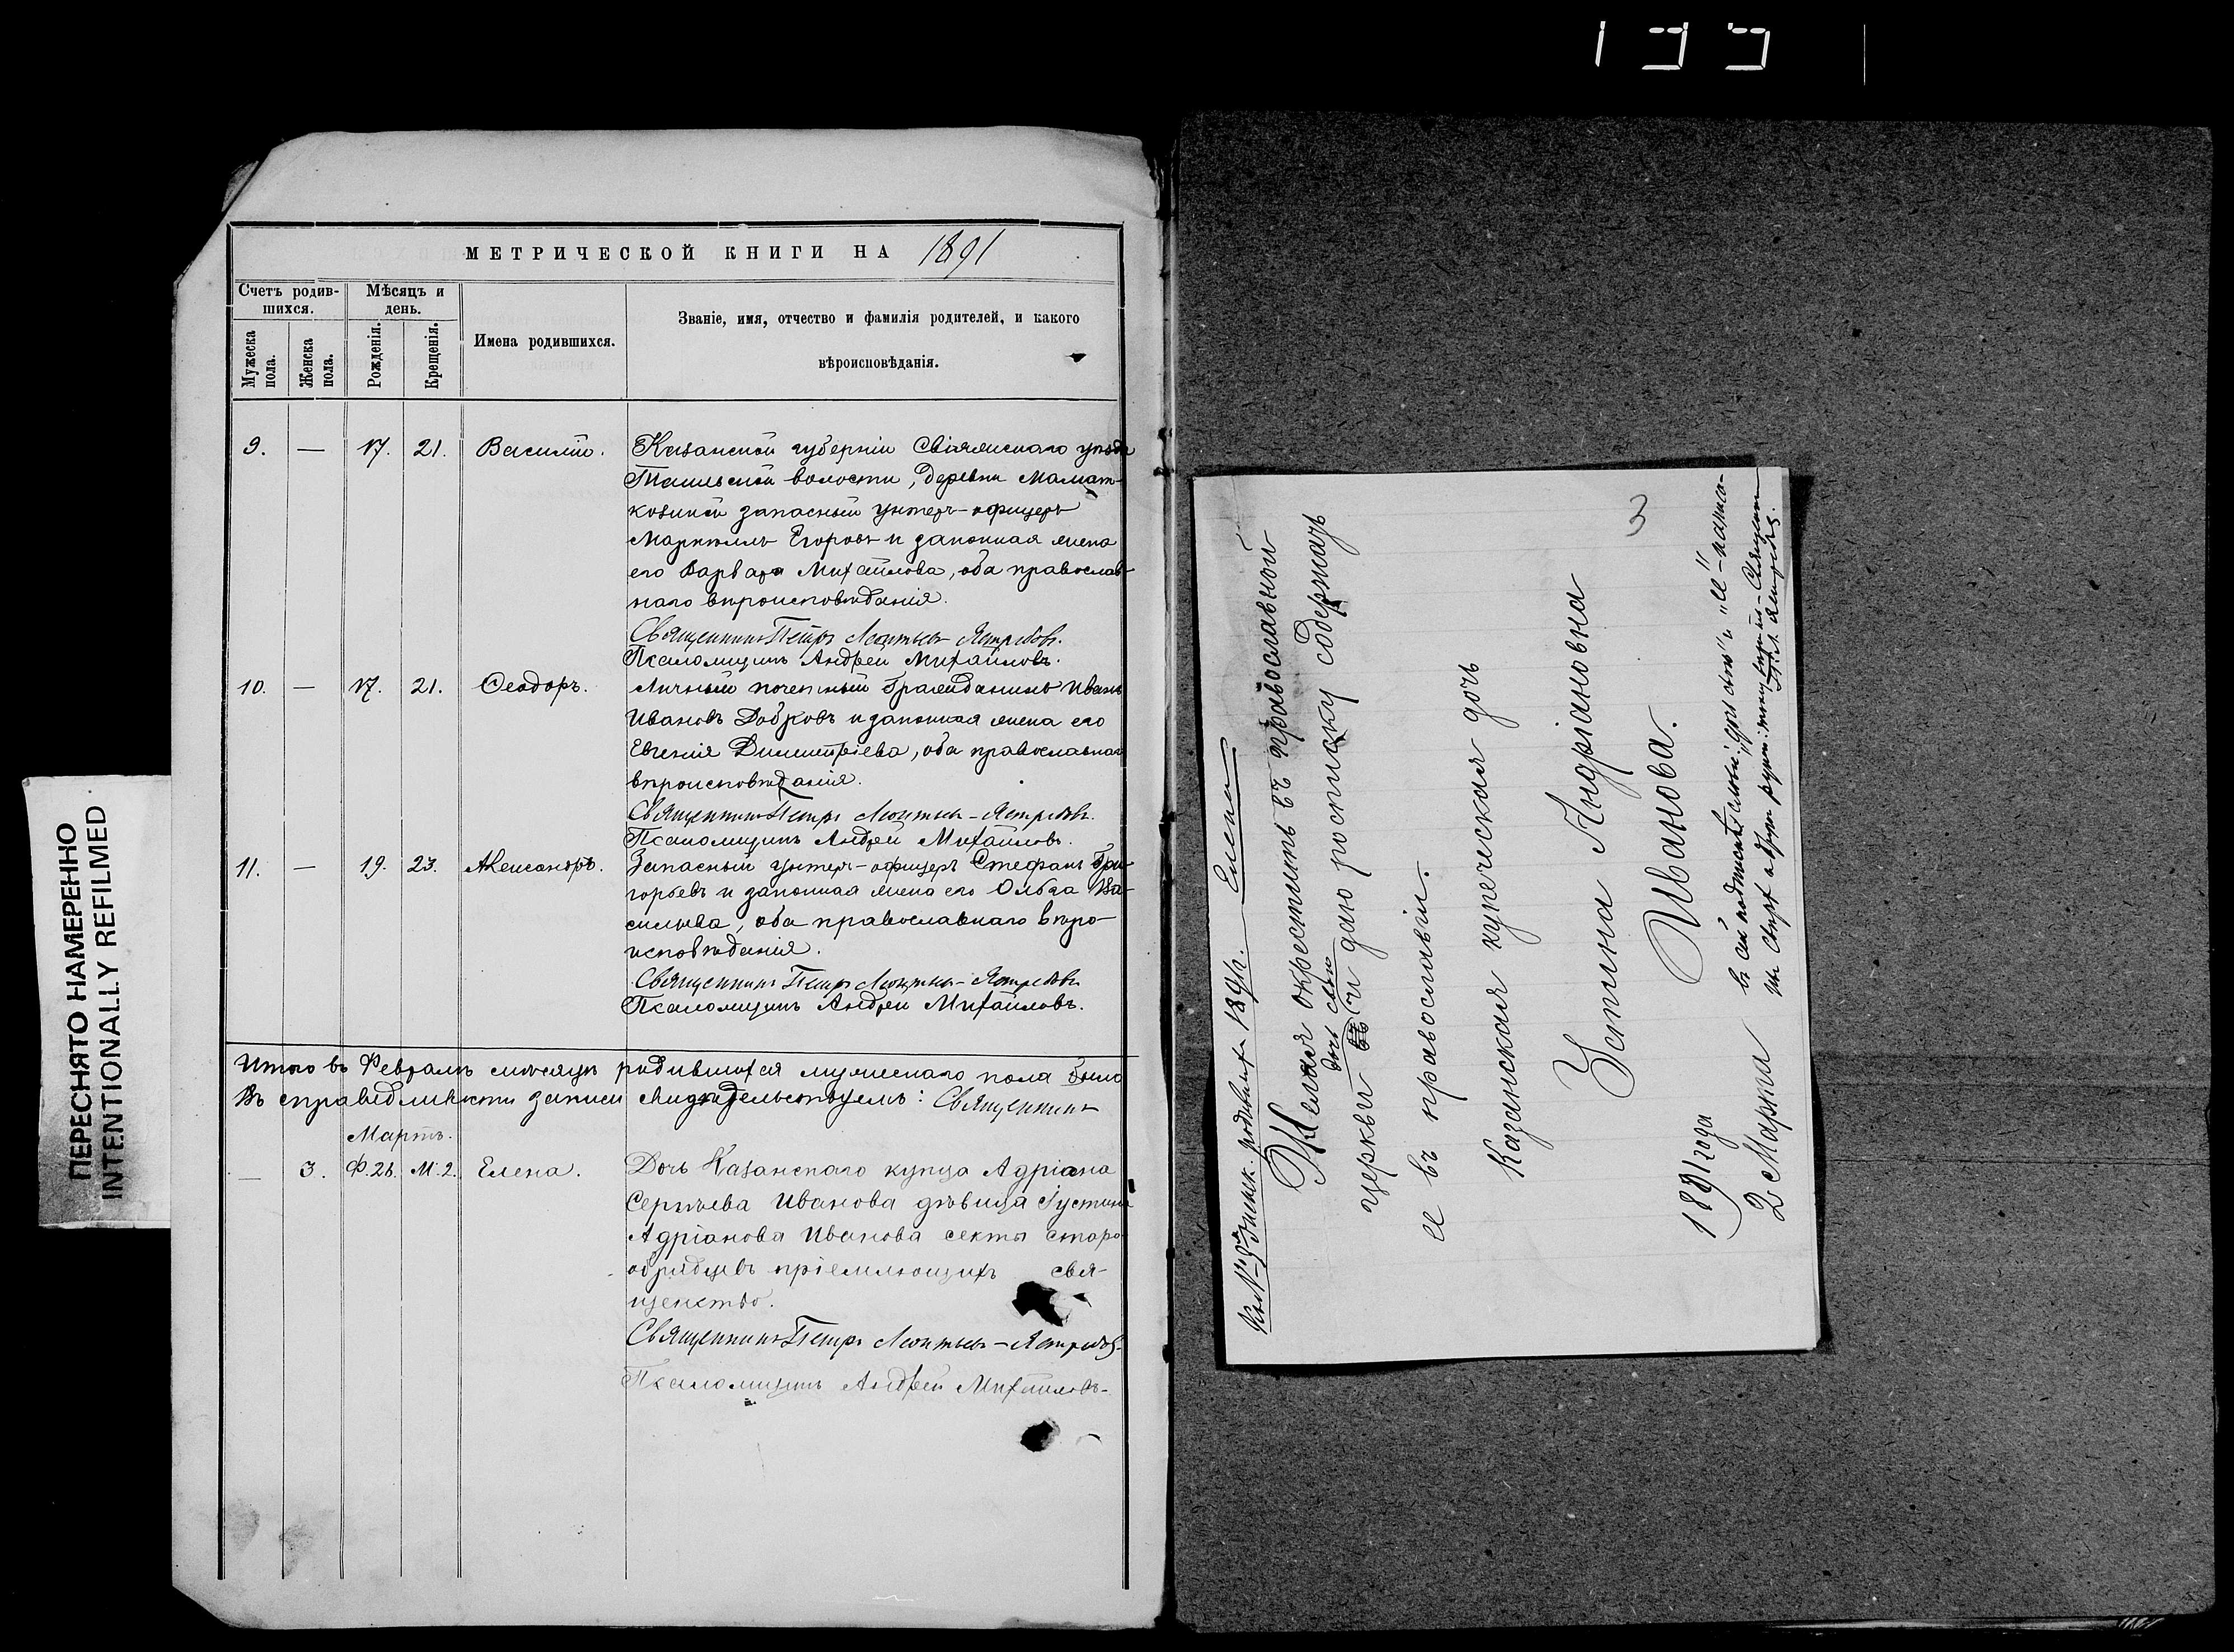 1991
ПЕРЕСНЯТО НАМЕРЕННО
INTENTIONALLY REFILMED
МЕТРИЧЕСКОЙ КНИГИ НА 1891
Счетъ родив-
шихся.
Мѣсяцъ и
день.
Мужеска
пола.
Женска
пола.
Рожденія.
Крещенія.
Имена родившихся.
Званіе, имя, отчество и фамилія родителей, и какого
вѣроисповѣданія.
9. — 17. 21. Василій. Казанской губерніи Свіяжскаго уѣзда
волости, деревни Мамат-
козиной запасный унтеръ-офицеръ
Маркеллъ Егоровъ и законная жена
его Варвара Михайлова, оба православ-
наго вѣроисповѣданія.
Священникъ Петръ Леонтьевъ-Ястребовъ.
Псаломщикъ Андрей Михайловъ.
10. — 17. 21. Ѳеодоръ. Личный почетный гражданинъ Иванъ
Ивановъ Бобровъ и законная жена его
Евгенія Димитріева, оба православнаго
вѣроисповѣданія.
Священникъ Петръ Леонтьевъ-Ястребовъ.
Псаломщикъ Андрей Михайловъ.
11. — 19. 23. Александръ. Запасный унтеръ-офицеръ Стефанъ Гри-
горьевъ и законная жена его Ольга Ва-
сильева, оба православнаго вѣро-
исповѣданія.
Священникъ Петръ Леонтьевъ-Ястребовъ
Псаломщикъ Андрей Михайловъ.
Итого въ Февралѣ мѣсяцѣ родившихся мужескаго пола было
Въ справедливости записи свидѣтельствуемъ: Священникъ
Мартъ.
— 3. Ф.28. М.2. Елена. Дочь Казанскаго купца Адріана
Сергѣева Иванова дѣвица Іустина
Адріанова Иванова секты старо-
обрядцевъ пріемлющихъ свя-
щенство.
Священникъ Петръ Леонтьевъ-Ястребовъ.
Псаломщикъ Андрей Михайловъ.
родивш. 1891г. Елена
Желая окрестить въ православной
дочь свою
церкви и даю росписку содержать
ее въ православіи.
Казанская купеческая дочь
Устина Андріановна
Иванова.
1891 года
2 Марта
въ сей подпискѣ слова: „дочь свою" и „ее"
3